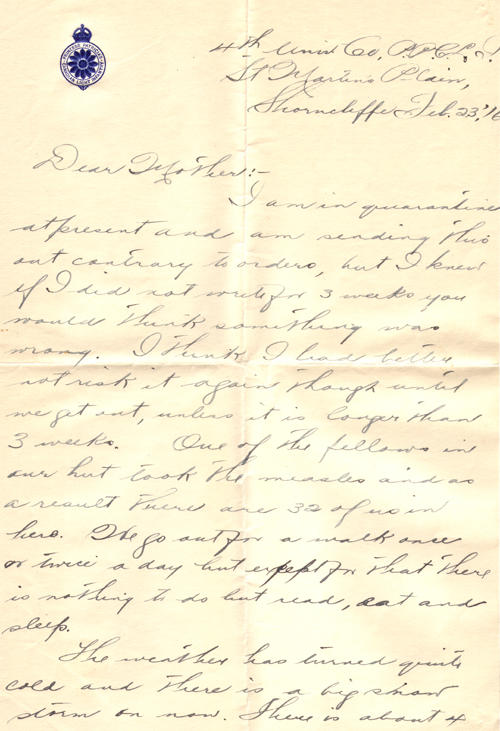 4th Univ Co, P.P.C.L.I.
St Martins Plain,
Shorncliffe Feb. 23, '16
Dear Mother:-
I am in quarantine
at present and am sending this
out contrary to orders, but I knew
if I did not write for 3 weeks you
would think something was
wrong. I think I had better
not risk it again though until
we get out, unless it is longer than
3 weeks. One of the fellows in
our hut took the measles and as
a result there are 32 of us in
here. We go out for a walk once
or twice a day but except for that there
is nothing to do but read, eat and
sleep.
The weather has turned quite
cold and there is a big snow
storm on now. There is about 4